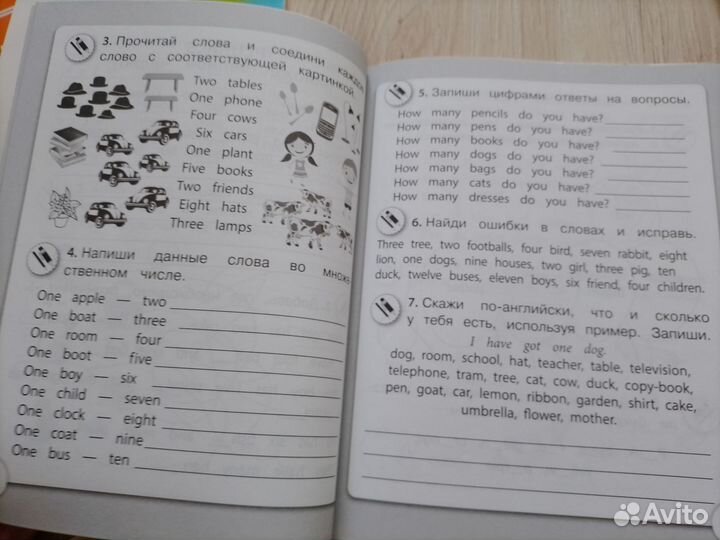 3. Прочитай слова и соедини каждое
слово с соответствующей картинкой.
Two tables
One phone
Four cows
Six cars
One plant
Five books
Two friends
Eight hats
Three lamps
4. Напиши данные слова во множе-
ственном числе.
One apple — two
One boat — three
One room — four
One boot — five
One boy — six
One child — seven
One clock — eight
One coat — nine
One bus — ten
5. Запиши цифрами ответы на вопросы.
How many pencils do you have?
How many pens do you have?
How many books do you have?
How many dogs do you have?
How many bags do you have?
How many cats do you have?
How many dresses do you have?
6. Найди ошибки в словах и исправь.
Three tree, two footballs, four bird, seven rabbit, eight
lion, one dogs, nine houses, two girl, three pig, ten
duck, twelve buses, eleven boys, six friend, four children.
7. Скажи по-английски, что и сколько
у тебя есть, используя пример. Запиши.
I have got one dog.
dog, room, school, hat, teacher, table, television,
telephone, tram, tree, cat, cow, duck, copy-book,
pen, goat, car, lemon, ribbon, garden, shirt, cake,
umbrella, flower, mother.
Avito